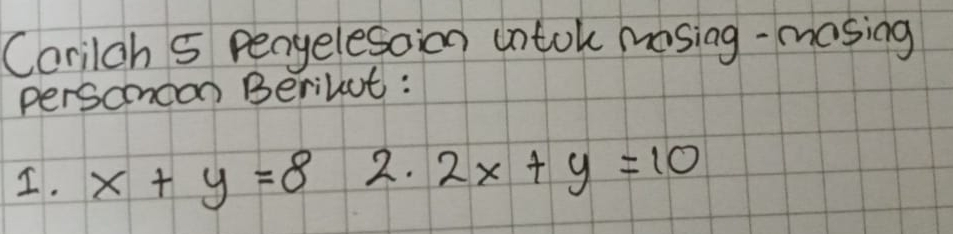 Carilah 5 penyelesaian untuk masing-masing
persamaan Berikut:
1. x + y = 8 2. 2x + y = 10